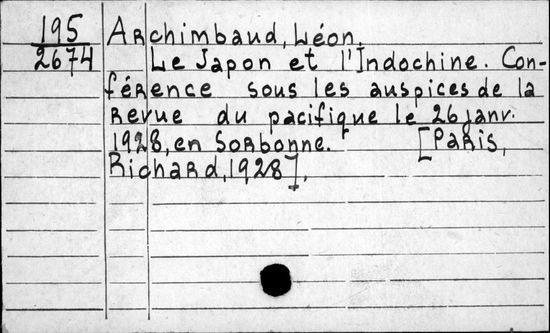 195 Archimbaud, Léon.
2674 Le Japon et l'Indochine. Con-
férence sous les auspices de la
Revue du pacifique le 26 janv.
1928, en Sorbonne. [Paris,
Richard, 1928].